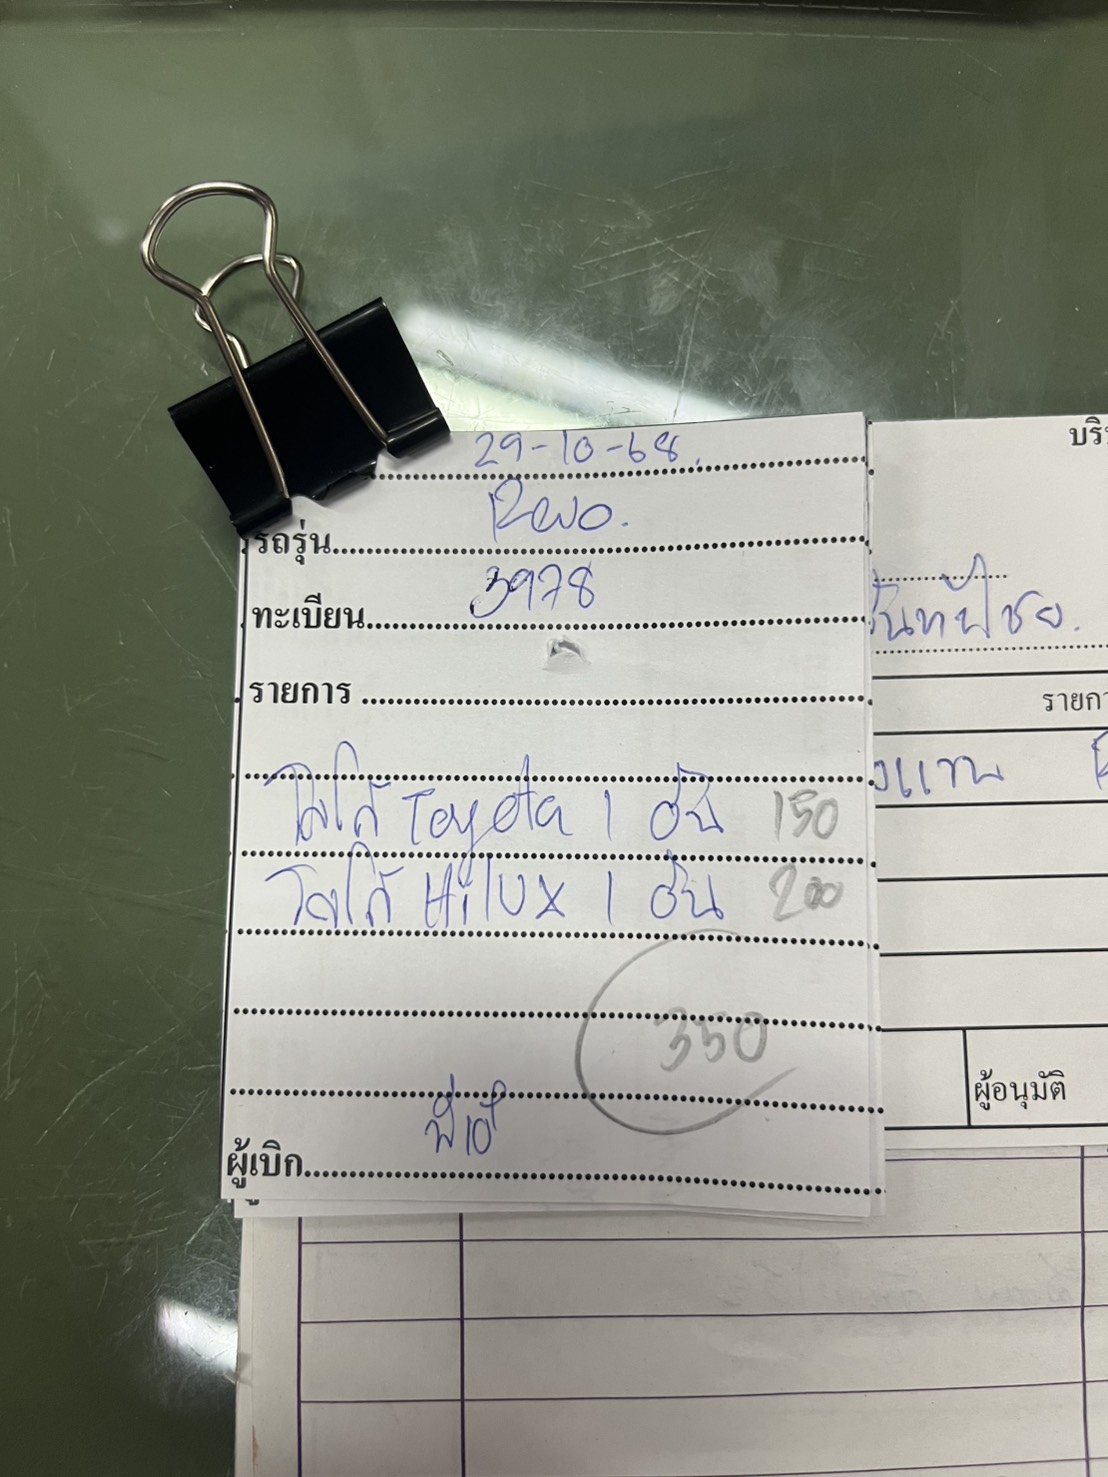 29-10-68.
รถรุ่น Revo.
ทะเบียน 3978
รายการ
โลโก้ Toyota 1 อัน 150
โลโก้ Hilux 1 อัน 200
350
ผู้เบิก
บริ
รายกา
ผู้อนุมัติ